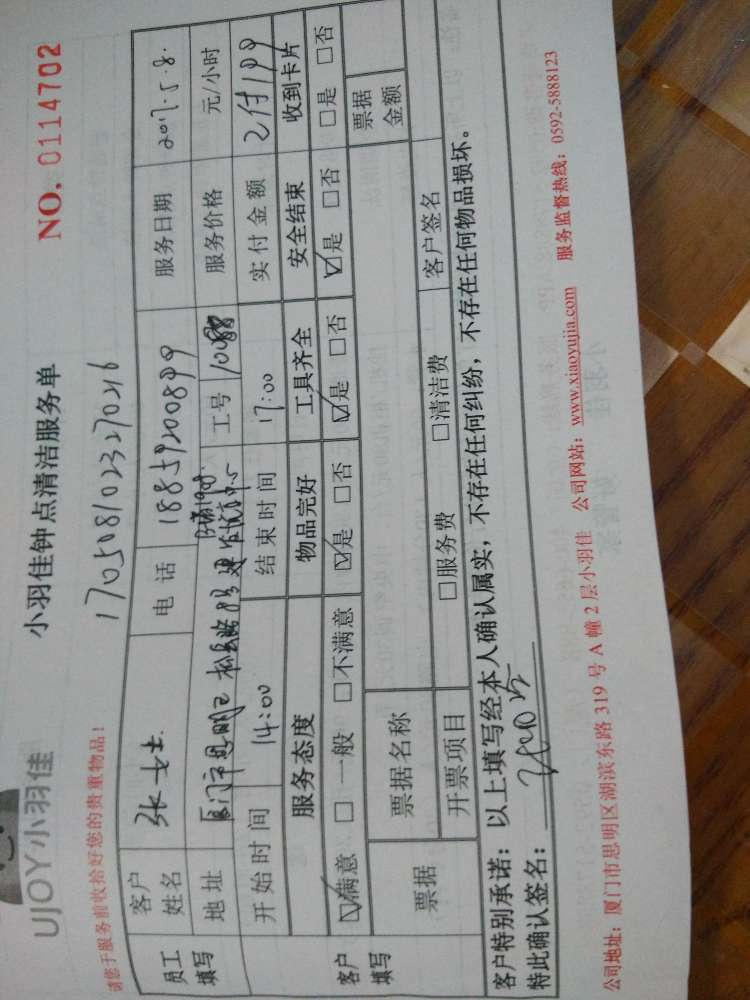 UJOY小羽佳
小羽佳钟点清洁服务单
NO. 0114702
请您于服务前收拾好您的贵重物品!
1705081023270246
员工填写 客户姓名 张女士 电话 18859200899 服务日期 2017.5.8.
地址 厦门市思明区 工号 服务价格 元/小时
开始时间 14:00 结束时间 17:00 实付金额 已付199
客户填写 服务态度 物品完好 工具齐全 安全结束 收到卡片
☑满意 □一般 □不满意 ☑是 □否 ☑是 □否 ☑是 □否 □是 □否
票据 票据名称 票据金额
开票项目 □服务费 □清洁费 客户签名
客户特别承诺:以上填写经本人确认属实,不存在任何纠纷,不存在任何物品损坏。
特此确认签名:
公司地址:厦门市思明区湖滨东路 319 号 A 幢 2 层小羽佳 公司网站:www.xiaoyujia.com 服务监督热线:0592-5888123